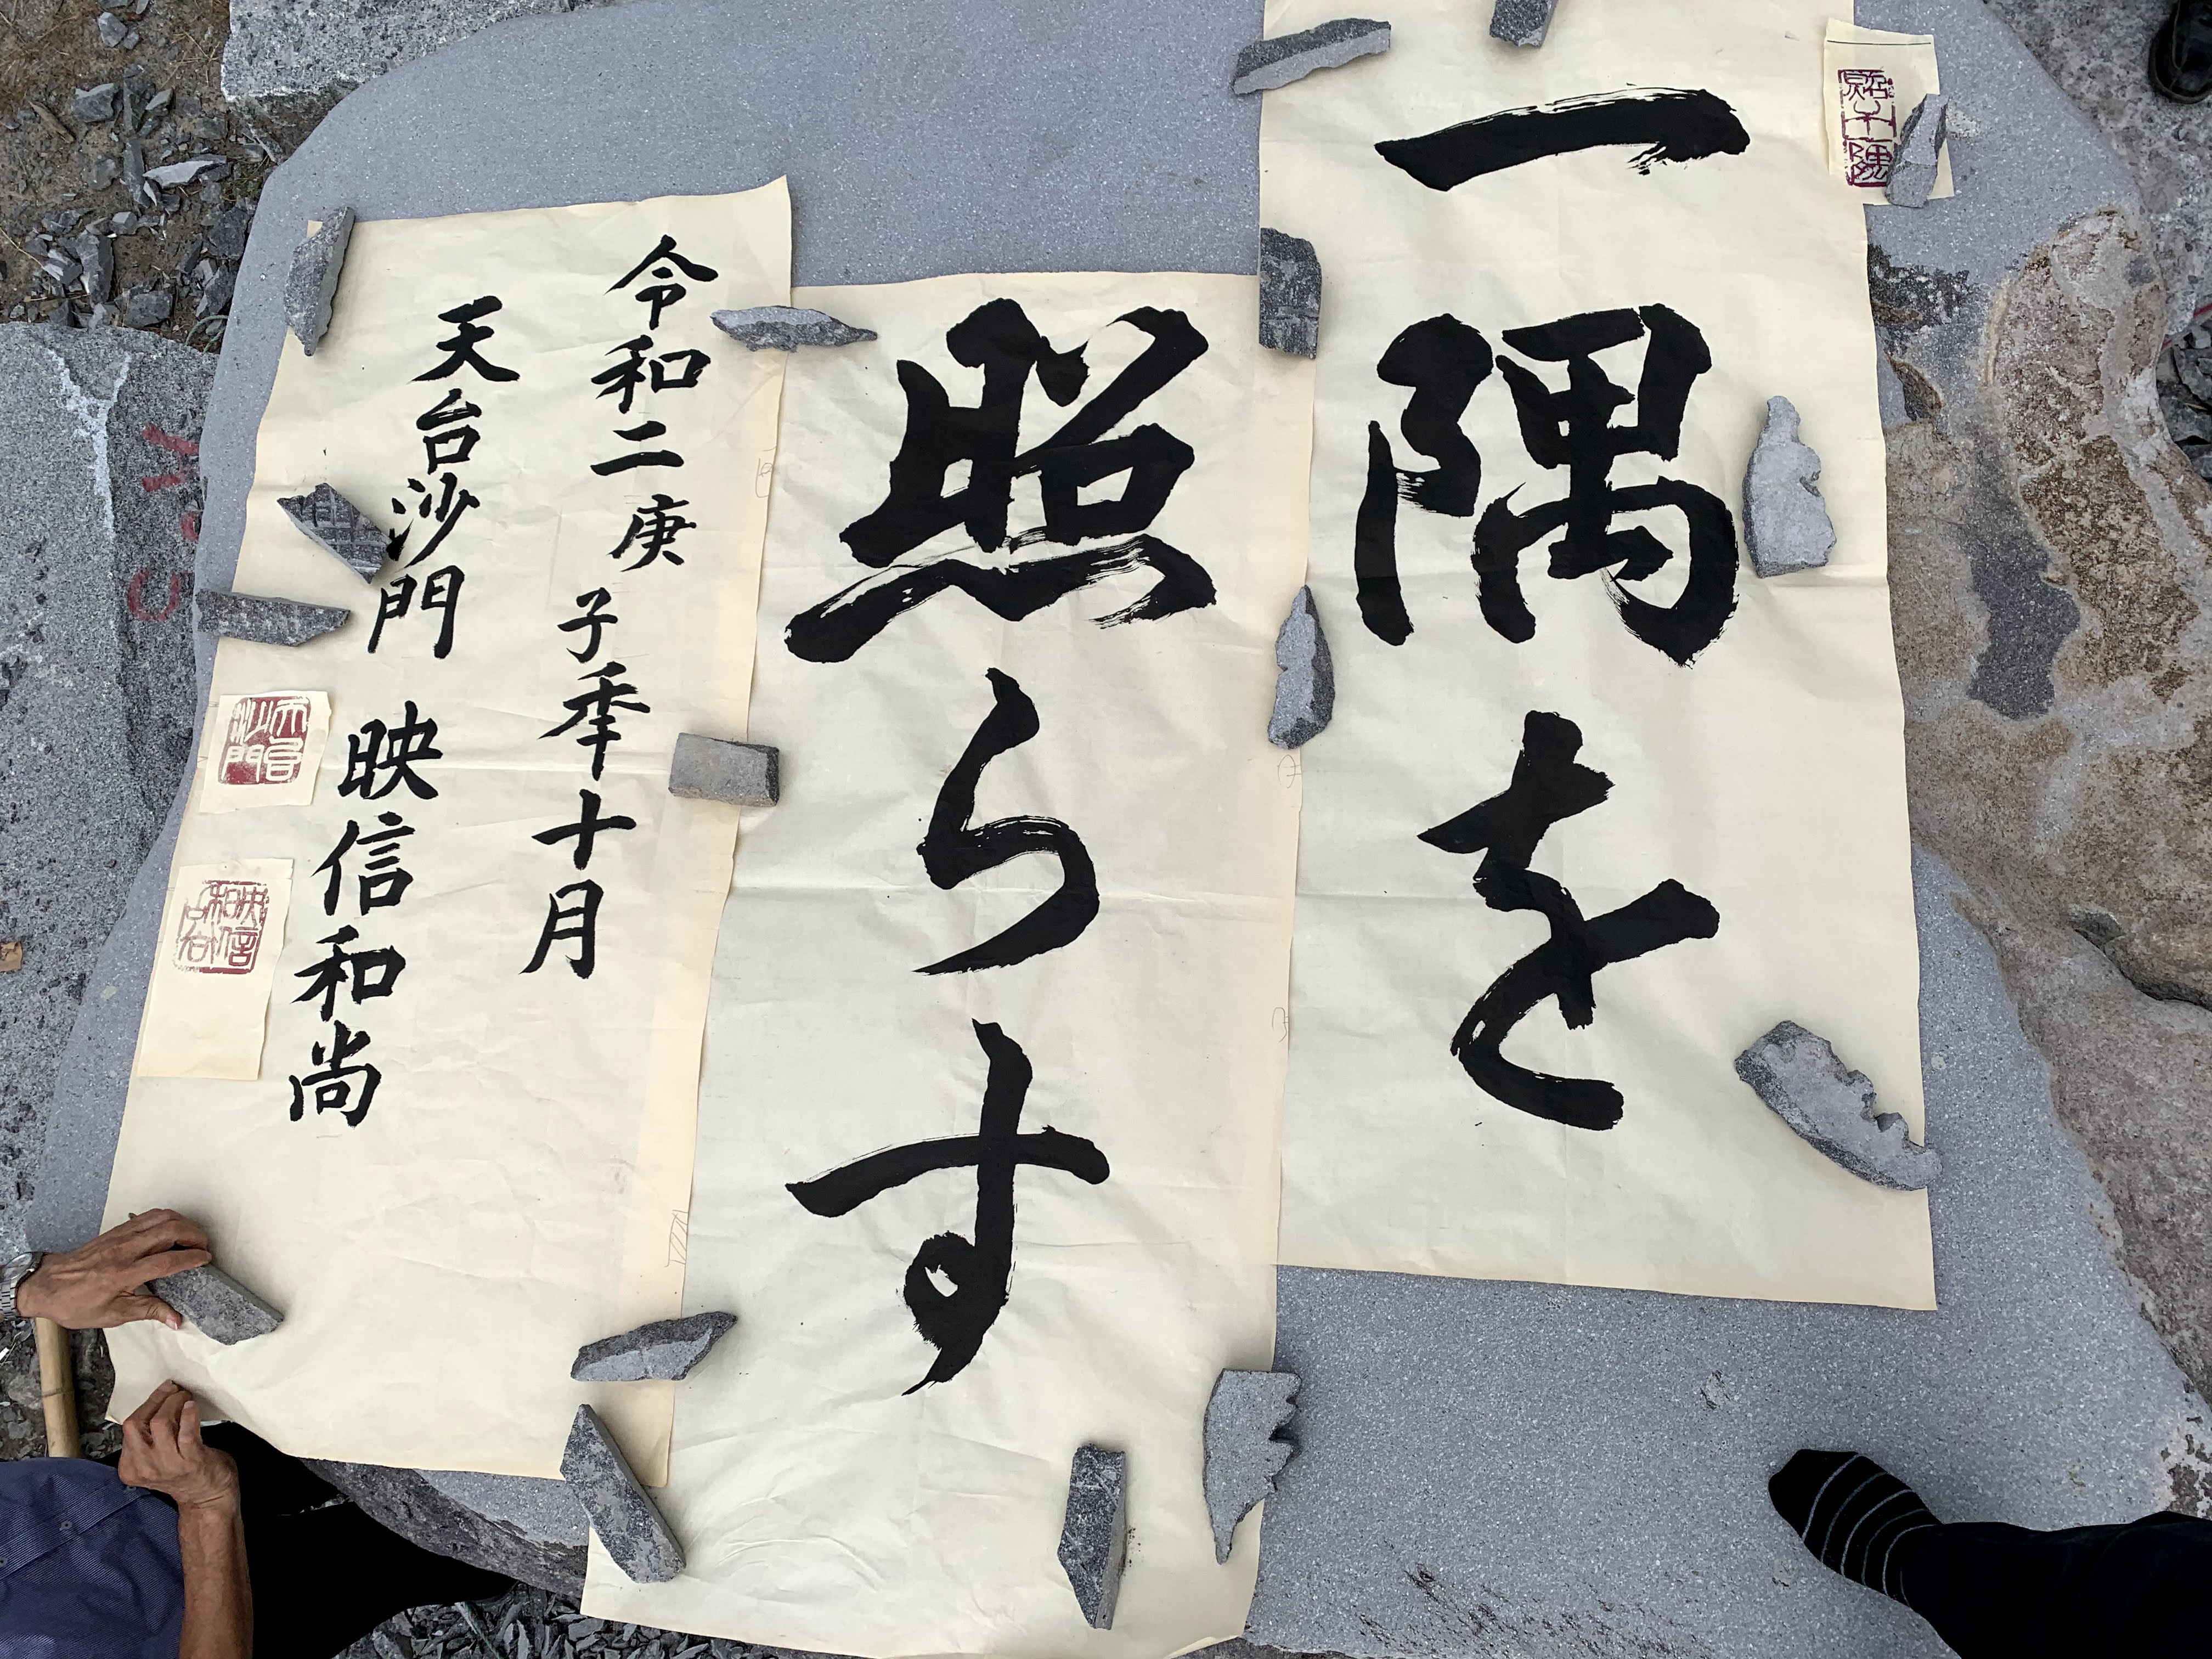 一隅を
照らす
令和二庚子季十月
天台沙門 映信和尚
天台沙門
映信和尚